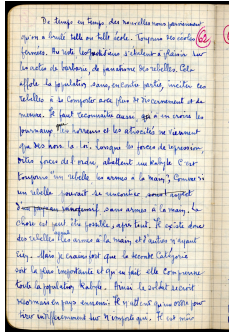 De temps en temps des nouvelles nous parviennent
qu'on a brulé telle ou telle école. Toujours des écoles
fermées. Au reste les journaux s'étalent à plaisir sur
les actes de barbarie de fanatisme des rebelles. Cela
affole la population sans, en contre partie, inciter les
rebelles à se comporter avec plus de discernement et de
mesure. Il faut reconnaitre aussi, qu'à en croire les
journaux les horreurs et les atrocités ne viennent
que des hors la loi. Lorsque les forces de répression,
dites forces de l'ordre, abattent un kabyle c'est
toujours "un rebelle les armes à la main". Comme si
un rebelle pouvait se rencontrer
sans armes à la main. La
chose est peut être possible, après tout. Il existe donc
des rebelles ayant les armes à la main, et d'autres n'ayant
rien. Mais je crains fort que la seconde catégorie
soit la plus importante et qu'en fait elle comprenne
toute la population kabyle. Ainsi le soldat serait
désormais en pays ennemi. Il n'attend qu'un ordre pour
tirer indifféremment sur n'importe qui. Il est mis
62